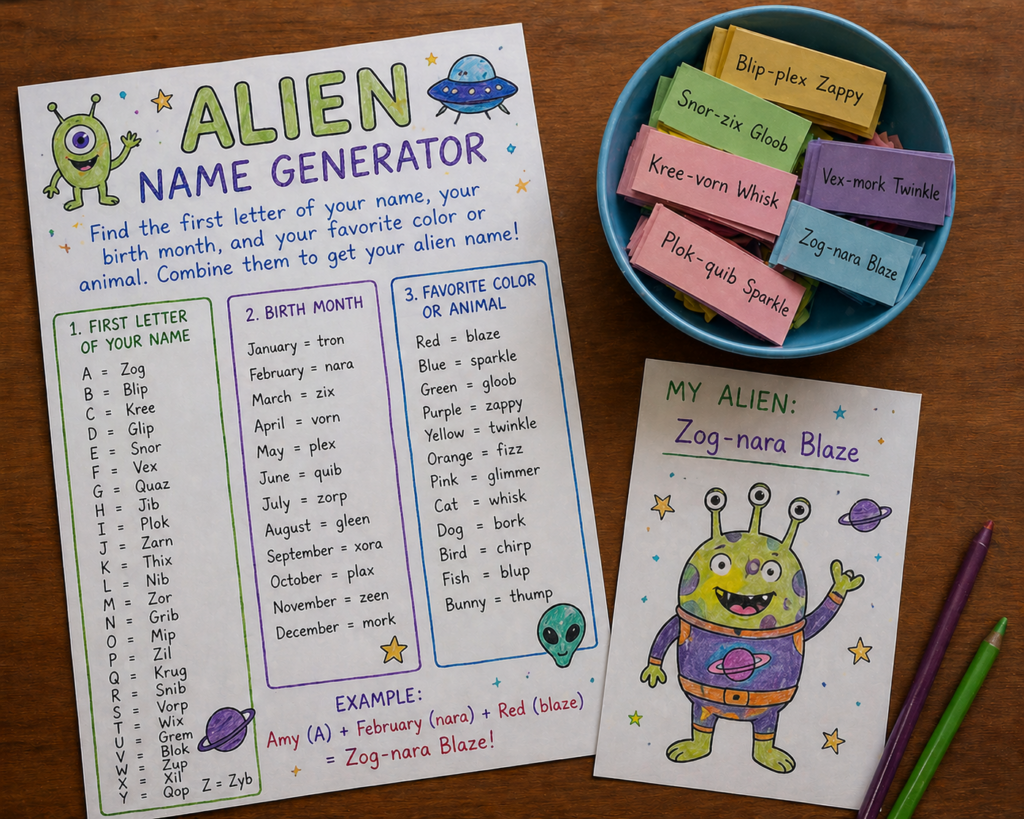 ALIEN
NAME GENERATOR
Find the first letter of your name, your
birth month, and your favorite color or
animal. Combine them to get your alien name!
1. FIRST LETTER
OF YOUR NAME
A = Zog
B = Blip
C = Kree
D = Glip
E = Snor
F = Vex
G = Quaz
H = Jib
I = Plok
J = Zarn
K = Thix
L = Nib
M = Zor
N = Grib
O = Mip
P = Zil
Q = Krug
R = Snib
S = Vorp
T = Wix
U = Grem
V = Blok
W = Zup
X = Xil
Y = Qop
Z = Zyb
2. BIRTH MONTH
January = tron
February = nara
March = zix
April = vorn
May = plex
June = quib
July = zorp
August = gleen
September = xora
October = plax
November = zeen
December = mork
3. FAVORITE COLOR
OR ANIMAL
Red = blaze
Blue = sparkle
Green = gloob
Purple = zappy
Yellow = twinkle
Orange = fizz
Pink = glimmer
Cat = whisk
Dog = bork
Bird = chirp
Fish = blup
Bunny = thump
EXAMPLE:
Amy (A) + February (nara) + Red (blaze)
= Zog-nara Blaze!
Blip-plex Zappy
Snor-zix Gloob
Kree-vorn Whisk
Vex-mork Twinkle
Zog-nara Blaze
Plok-quib Sparkle
MY ALIEN:
Zog-nara Blaze